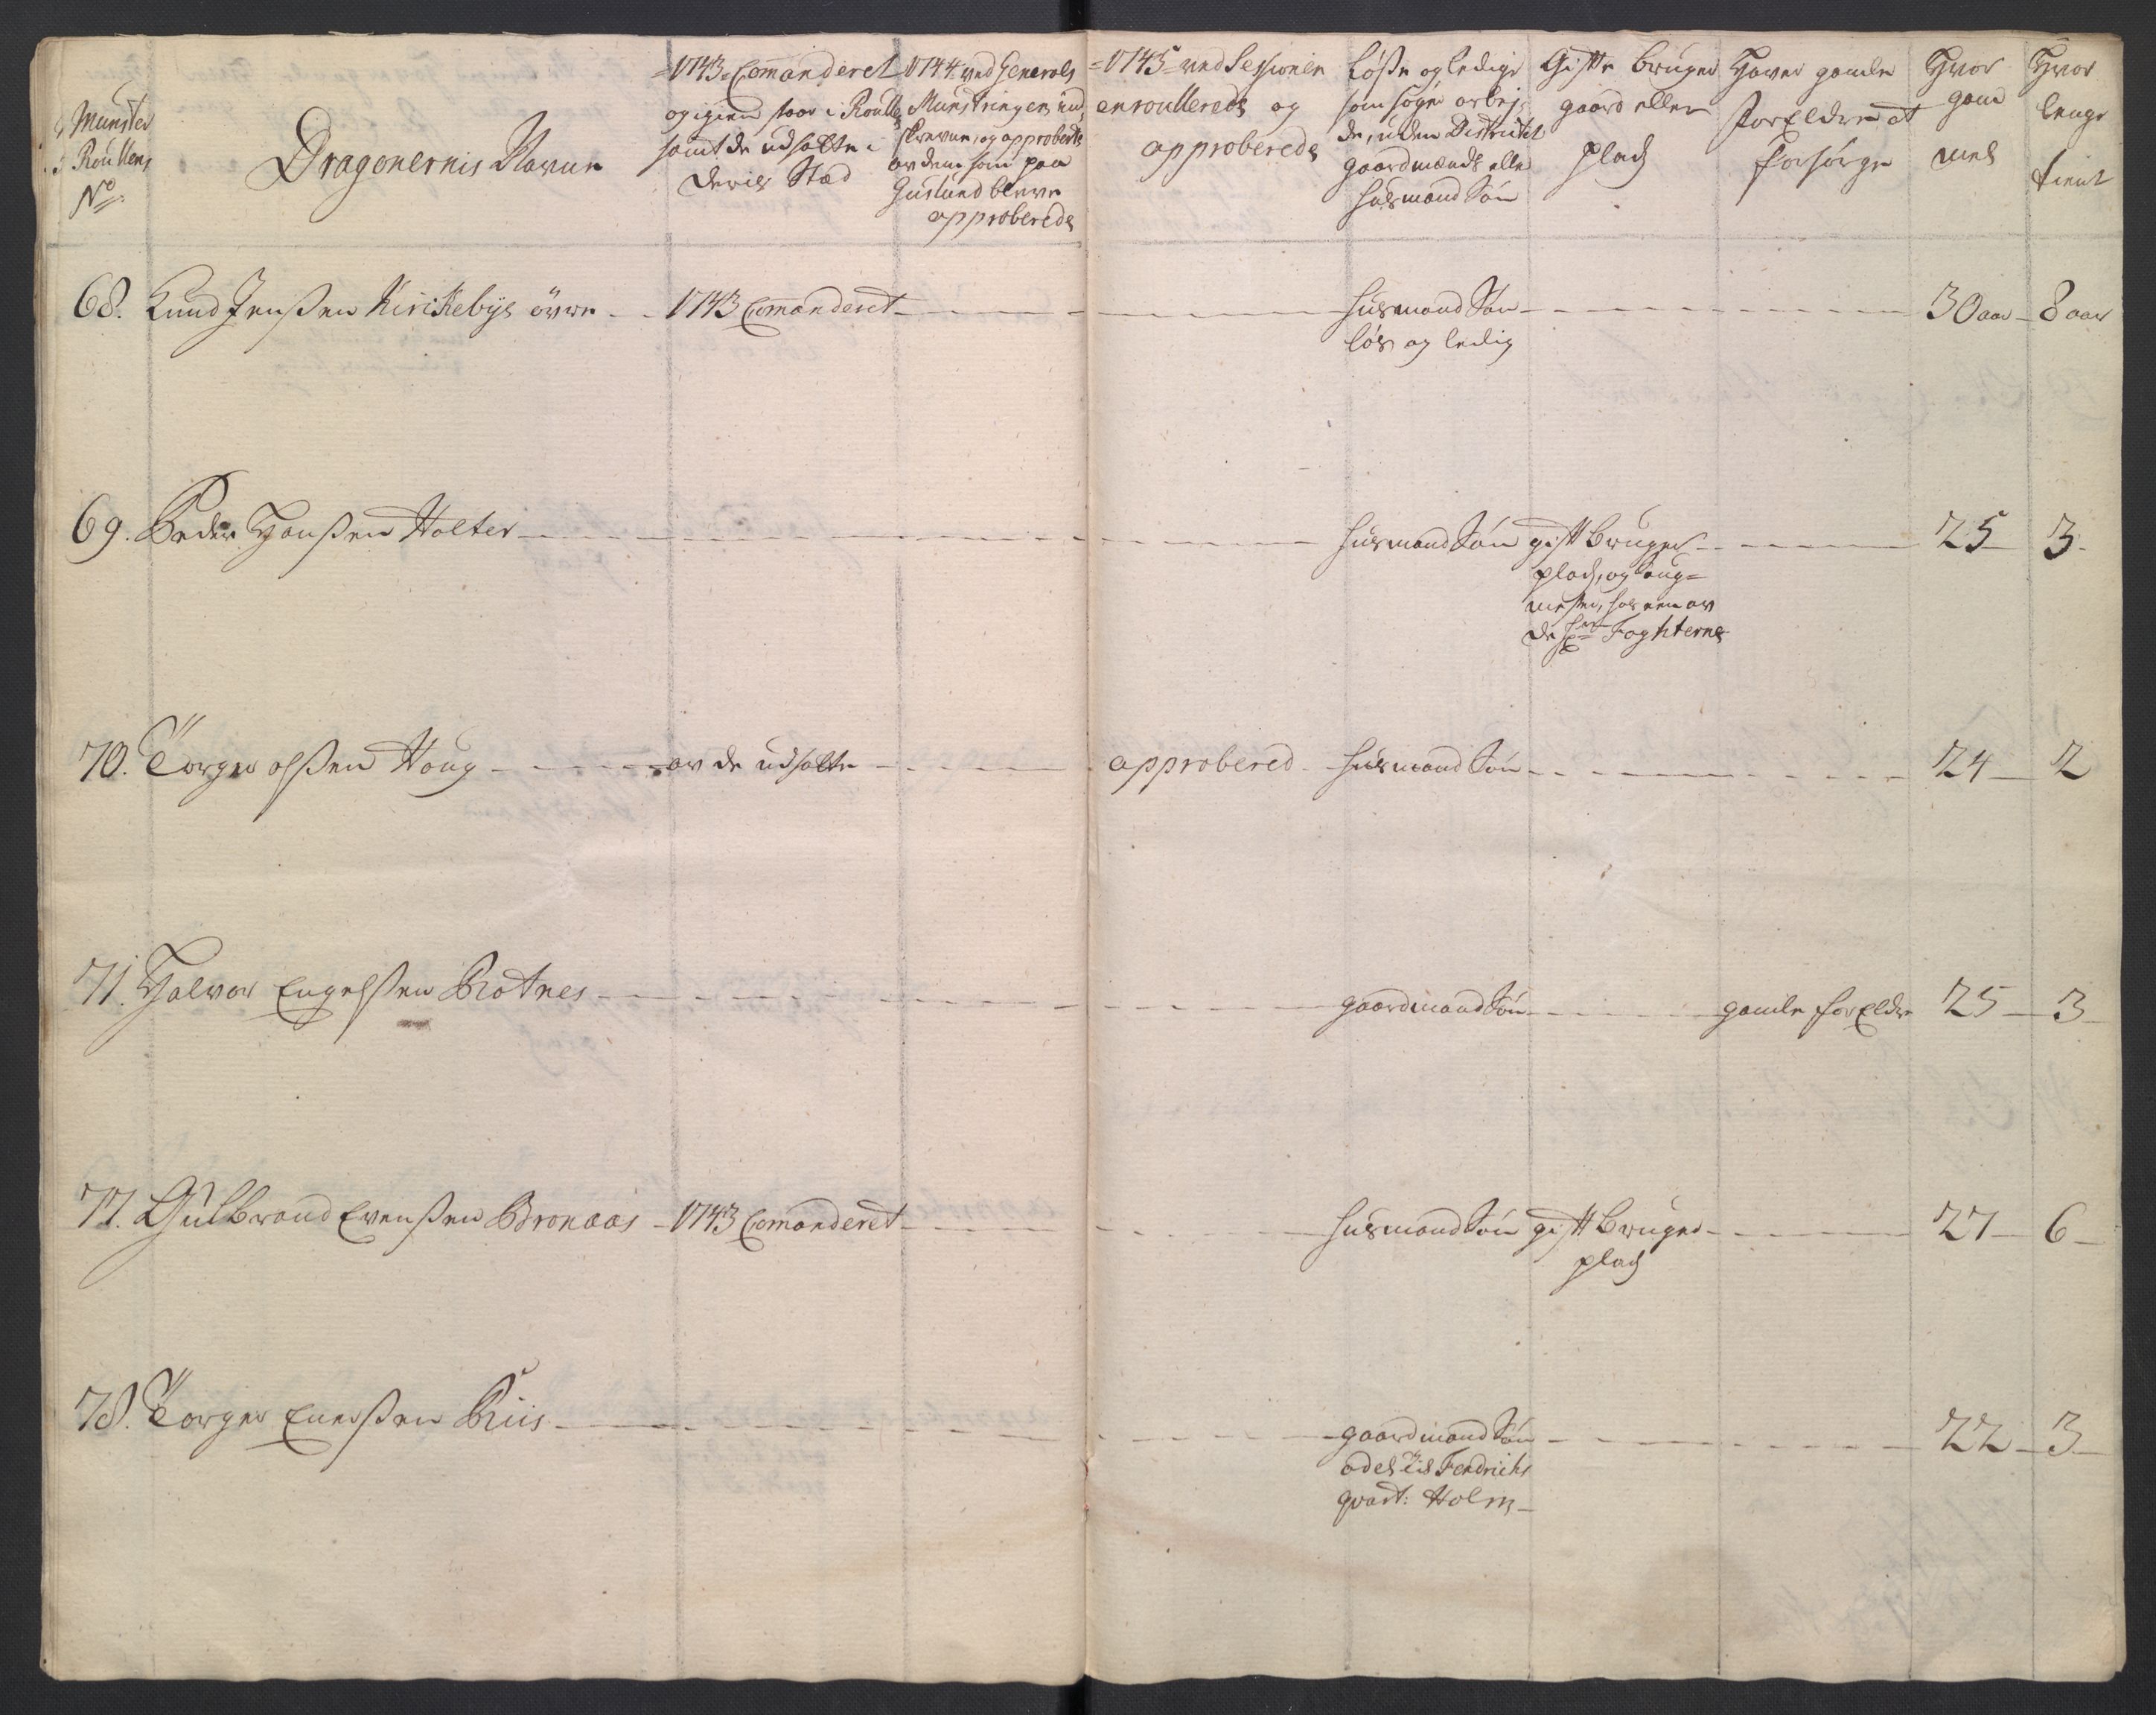 Munster
i Roullens
No
Dragonernis Navne
1743 Comanderet
og igien staar i Roullen
samt de udsatte i
deris Stæd
1744 ved Generals
Munstringen ind
skrevne, og approberte
av dem som paa
Guslund bleve
approberede
1745 ved Sessionen
enroullerede og
approberede
Løsse og ledige
som søger arbej,
de, uden Districtet
gaardmands eller
huusmand Søn
Gifte bruger
gaard eller
pladz
Haver gamle
forældre at
forsørge
Hvor
gam
mel
Hvor
lenge
tient
68. Knud Jenssen Kirkebye övre 1743 Comanderet huusmand Søn 30 aar 8 aar
løs og ledig
69. Peder Hanssen Holter huusmand Søn gift bruger 25 3
pladz, og Saug=
mester, hos een av
de Hrr Foghterne
70. Torger olssen Houg av de udsatte approbered huusmand Søn 24 2
71. Halvor Engelssen Rotnes gaardmand Søn gamle forældre 25 3
77. Gulbrand Evenssen Bronaas 1743 Comanderet huusmand Søn gift bruger 27 6
pladz
78. Torger Enerssen Riis gaardmand Søn 22 3
odel til Fendrichs
qvart: Holm